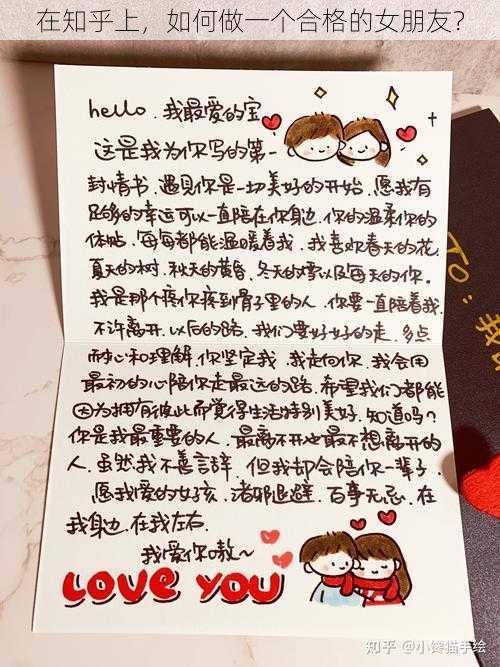 在知乎上，如何做一个合格的女朋友？
hello.我最爱的宝
这是我为你写的第一
封情书.遇见你是一切美好的开始.愿我有
足够的幸运可以一直陪在你身边.你的温柔你的
体贴.每每都能温暖着我.我喜欢春天的花.
夏天的树.秋天的黄昏.冬天的雪以及每天的你.
我是那个疼你疼到骨子里的人.你要一直陪着我.
不许离开.以后的路.我们要好好的走.多点
耐心和理解.你坚定我.我走向你.我会用
最初的心陪你走最远的路.希望我们都能
因为拥有彼此而觉得生活特别美好.知道吗？
你是我最重要的人.最离不开也最不想离开的
人.虽然我不善言辞.但我却会陪你一辈子
愿我爱的女孩.诸邪退避.百事无忌.在
我身边.在我左右.
我爱你嗷~
LOVE YOU
To:我
知乎 @小馋猫手绘